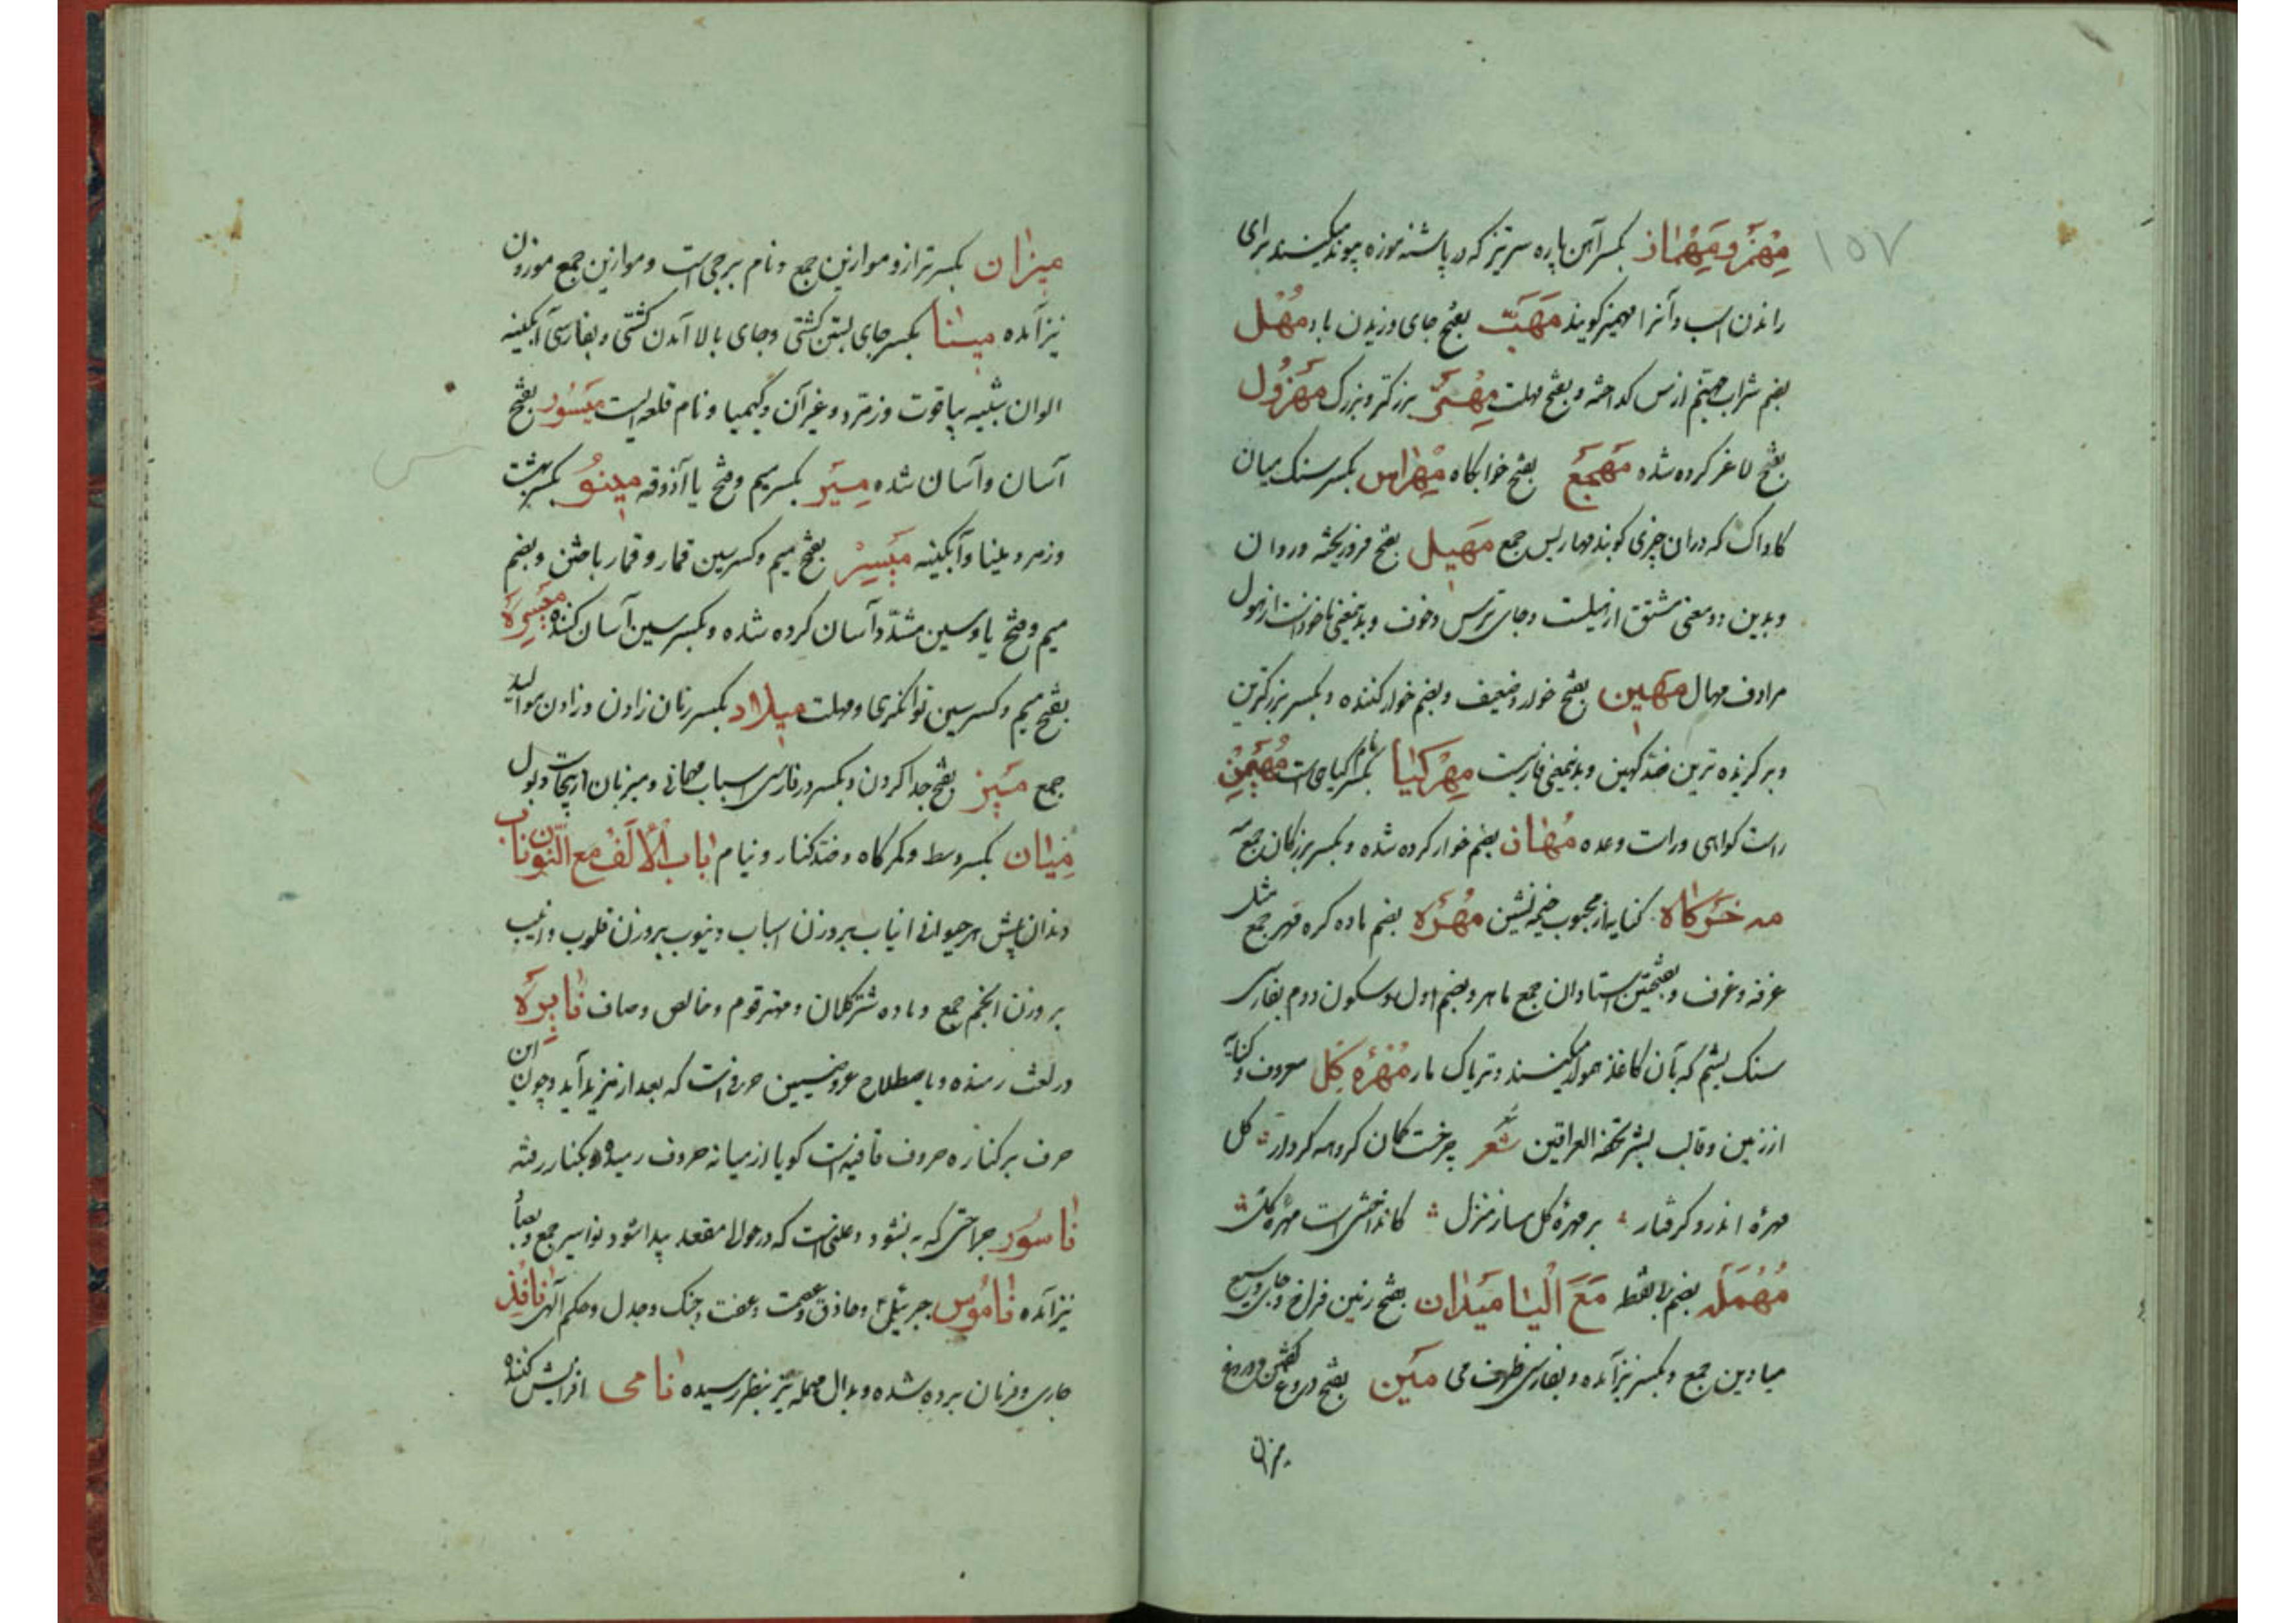 ۱۵۷
مِهْمَز و مِهْمَاز بکسر آهن پاره سرتیز که در پاشنه موزه پیوند میکنند برای
راندن اسب و آنرا مهمیز کویند مَهَبّ بفتح جای وزیدن باد مُهْل
بضم شراب جهنم ارزیز کداخته و بفتح مهلت برزکتر و بزرک مَهْزُول
بفتح لاغر کرده شده مَهْجَع بفتح خوابکاه مِهْرَاس بکسر سنک میان
کاواک که دران چیزی کوبند مهاریس جمع مَهِیل بفتح فروریخته و روان
و بدین دو معنی مشتق از هیلست و جای ترس و خوف و بدینمعنی ماخوذست از هول
مرادف مهال مَهِین بفتح خوار و ضعیف و بضم خوار کننده و بکسر بزرکترین
و برکزیده ترین ضد کهین و بدینمعنی فارسیست مِهْرکیَا بکسر نام کیاهی است مُهَیْمِنْ
راست کواهی و راست وعده مُهَان بضم خوار کرده شده و بکسر بزرکان جمع مه
مه خَرکاه کنایه از محبوب خیمه نشین مُهْرَه بضم ماده کره مهر جمع مثل
غرفه و غرف و بفتحتین استادان جمع ماهر و بضم اول و سکون دوم بفارسی
سنک یشم که بآن کاغذ مهره میکنند و تریاک مار مُهْرَهٔ کِل معروف و کنایه
از زمین و قالب بشر تحفة العراقین شعر چرخت کمان کروهه کردار کل
مهرهٔ اندرو کرفتار بر مهرهٔ کل مساز منزل کانداختنی است مهرهٔ کل
مُهْمَلَه بضم بی نقطه مَعَ الْیَا مَیْدَان بفتح زمین فراخ و جای وسیع
میادین جمع و بکسر نیز آمده و بفارسی ظرف می مَیْن بفتح دروغ کفتن و دروغ
میزان
میزَان بکسر ترازو موازین جمع و نام برجی است و موازین جمع موزون
نیز آمده مینَا بکسر جای بستن کشتی و جای بالا آمدن کشتی و بفارسی آبکینه
الوان شبیه بیاقوت و زمرد و غیر آن و کیمیا و نام قلعه ایست مَیْسُور بفتح
آسان و آسان شده مِیَر بکسر میم و فتح یا آذوقه مینُو بکسر بهشت
و زمرد و مینا و آبکینه مَیْسِرْ بفتح میم و کسر سین قمار و قمار باختن و بضم
میم و فتح یا و سین مشدّد آسان کرده شده و بکسر سین آسان کننده مَیْسِرَه
بفتح میم و کسر سین توانکری و مهلت میلَاد بکسر زمان زادن و زادن موالید
جمع مَیْز بفتح جدا کردن و بکسر در فارسی اسباب مهمانی و میزبان ازینجاست و بول
مِیَان بکسر وسط و کمرکاه و ضد کنار و نیام بَاب الْاَلَف مع النّون نَاب
دندان پیش هر حیوانی انیاب بروزن اسباب و نیوب بروزن قلوب و انیب
بروزن انجم جمع و ماده شتر کلان و مهتر قوم و خالص و صاف
در لغت رمنده و باصطلاح عروضیین حرفی است که بعد از مزید آید و چون این
حرف برکناره حروف قافیه است کویا از میانه حروف رمیده بکنار رفته
نَاسُور جراحتی که به نشود و علتی است که در حوالی مقعد پیدا شود نواسیر جمع و بصاد
نیز آمده نَامُوس جبرئیل و حاذق و عصمت و عفت و جنک و جدل و حکم آلهی نَافِذ
جاری و فرمان برده شده و بدال مهمله نیز بنظر رسیده نَامی افزایش کننده